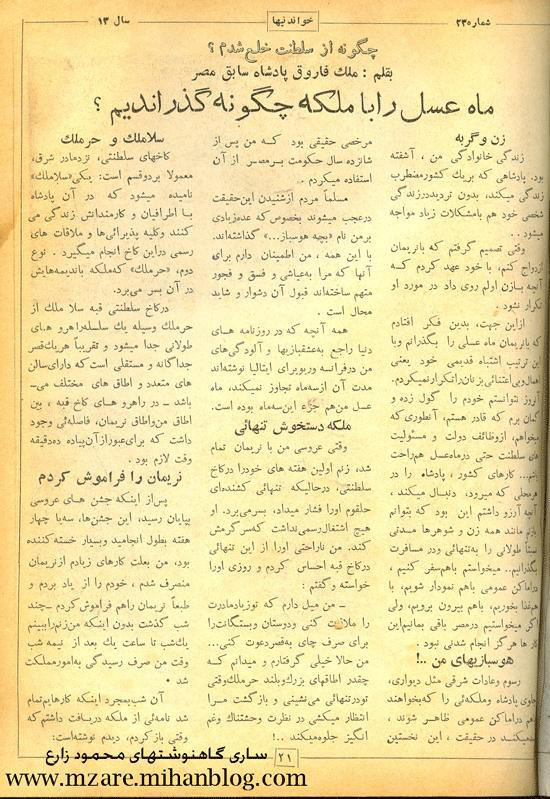 شماره ۲۳
خواندنیها
سال ۱۳
چگونه از سلطنت خلع شدم ؟
بقلم : ملك فاروق پادشاه سابق مصر
ماه عسل را با ملكه چگونه گذراندیم ؟
زن و گربه
زندگی خانوادگی من ، آشفته
بود. پادشاهی که بریك کشور مضطرب
زندگی میکند، بدون تردید در زندگی
شخصی خود هم با مشکلات زیاد مواجه
میشود ..
وقتی تصمیم گرفتم که با نریمان
ازدواج کنم، با خود عهد کردم کــه
آنچه با زن اولم روی داد در مورد او
تکرار نشود .
ازین جهت، بدین فکر افتادم
که با نریمان ماه عسلی را بگذرانم و با
این ترتیب اشتباه قدیمی خود یعنی
اهمال و بی اعتنائی بزن را تکرار نمیکردم.
آنروز نتوانستم خودم را گول زده و
گمان برم که قادر هستم، آنطوری که
میخواهم، از وظائف دولت و مسئولیت
های سلطنت حتی در ماه عسل هم راحت
باشم... کارهای کشور ، پادشاه را در
هر محلی که میرود، دنبال میکند ،
آنچه آرزو داشتم این بود که بتوانم
بازنم مانند همه زن و شوهرها مــدتی
نسبتاً طولانی را به تنهائی و در مسافرت
بگذرانیم.. میخواستم باهم سفر کنیم ،
در اماکن عمومی باهم نمودار شویم، با
هم غذا بخوریم، باهم بیرون برویم، ولی
اگر میخواستیم در مصر باقی بمانیم این
کارها هرگز انجام شدنی نبود .
هوسبازیهای من ..!
رسوم و عادات شرقی مثل دیواری،
جلوی پادشاه و ملکه ئی را که بخواهند
باهم در اماکن عمومی ظاهــر شوند ،
سد میکنــد در حقیقت ، این نخستین
مرخصی حقیقی بود کــه من پس از
شانزده سال حکومت بر مصر از آن
استفاده میکردم .
مسلماً مردم از شنیدن این حقیقت
در عجب میشوند بخصوص که عده زیادی
بر من نام «بچه هوسباز...» گذاشته اند.
با این همه ، من اطمینان دارم برای
آنها که مرا به عیاشی و فسق و فجور
متهم ساخته اند قبول آن دشوار و شاید
محال است .
همه آنچه که در روزنامه هــای
دنیا راجع به عشقبازیها و آلودگی های
من در فرانسه و ریویرای ایتالیا نوشته اند
مدت آن از سه ماه تجاوز نمیکند، ماه
عسل من هم جزء این سه ماه بوده است.
ملکه دستخوش تنهائی
وقتی عروسی من با نریمان تمام
شد، زنم اولین هفته های خود را در کاخ
سلطنتی، در حالیکه تنهائی کشنده ای
حلقوم او را فشار میداد، بسر می برد. او
هیچ اشتغال رسمی نداشت که سرگرمش
کند. من ناراحتی او را از این تنهائی
در کاخ قبه احساس کردم و روزی او را
خواسته و گفتم :
ــ من میل دارم که تو زیاد مادرت
را ملاقات کنی و دوستان و بستگانت را
برای صرف چای به قصر دعوت کنی...
من حالا خیلی گرفتارم و میدانم که
چقدر اطاقهای بزرگ و بلند حرملك وقتی
تو در تنهائی می نشینی و بازگشت مــرا
انتظار میکشی در نظرت وحشتناك و غم
انگیز جلوه میکند ..!
سلاملك و حرملك
کاخهای سلطنتی، نزد ما در شرق،
معمولا بر دو قسم است: یکی «سلاملك»
نامیده میشود که در آن پادشاه
بــا اطرافیان و کارمندانش زندگی می
کنند و کلیه پذیرائی ها و ملاقات های
رسمی در این کاخ انجام میگیرد . نوع
دوم، «حرملك» که ملکه با ندیمه هایش
در آن بسر می برد.
در کاخ سلطنتی قبه سلا ملك از
حرملك وسیله یك سلسله راهرو هــای
طولانی جدا میشود و تقریباً هر یك قصر
جداگانه و مستقلی است که دارای سالن
های متعدد و اطاق های مختلف می‌ــ
باشد ــ در راهرو های کاخ قبه ، بین
اطاق من و اطاق نریمان، فاصله ئی وجود
داشت که برای عبور از آن پیاده ده دقیقه
وقت لازم بود .
نریمان را فراموش کردم
پس از اینکه جشن هــای عروسی
بپایان رسید، این جشن ها، سه یا چهار
هفته بطول انجامید و بسیار خسته کننده
بود، من بعلت کارهای زیادم از نریمان
منصرف شدم ، خودم را از یاد بردم و
طبعاً نریمان را هم فراموش کردم ــ چند
شب گذشت بدون اینکه من زنم را ببینم
یك شب تا ساعت یك بعد از نیمه شب
وقت من صرف رسیدگی به امور مملکت
شد .
آن شب بمجرد اینکه کارهایم تمام
شد نامه ئی از ملکه دریافت داشتم که
وقتی باز کردم، دیدم نوشته است:
۲۱
ساری گاهنوشتهای محمود زارع
www.mzare.mihanblog.com